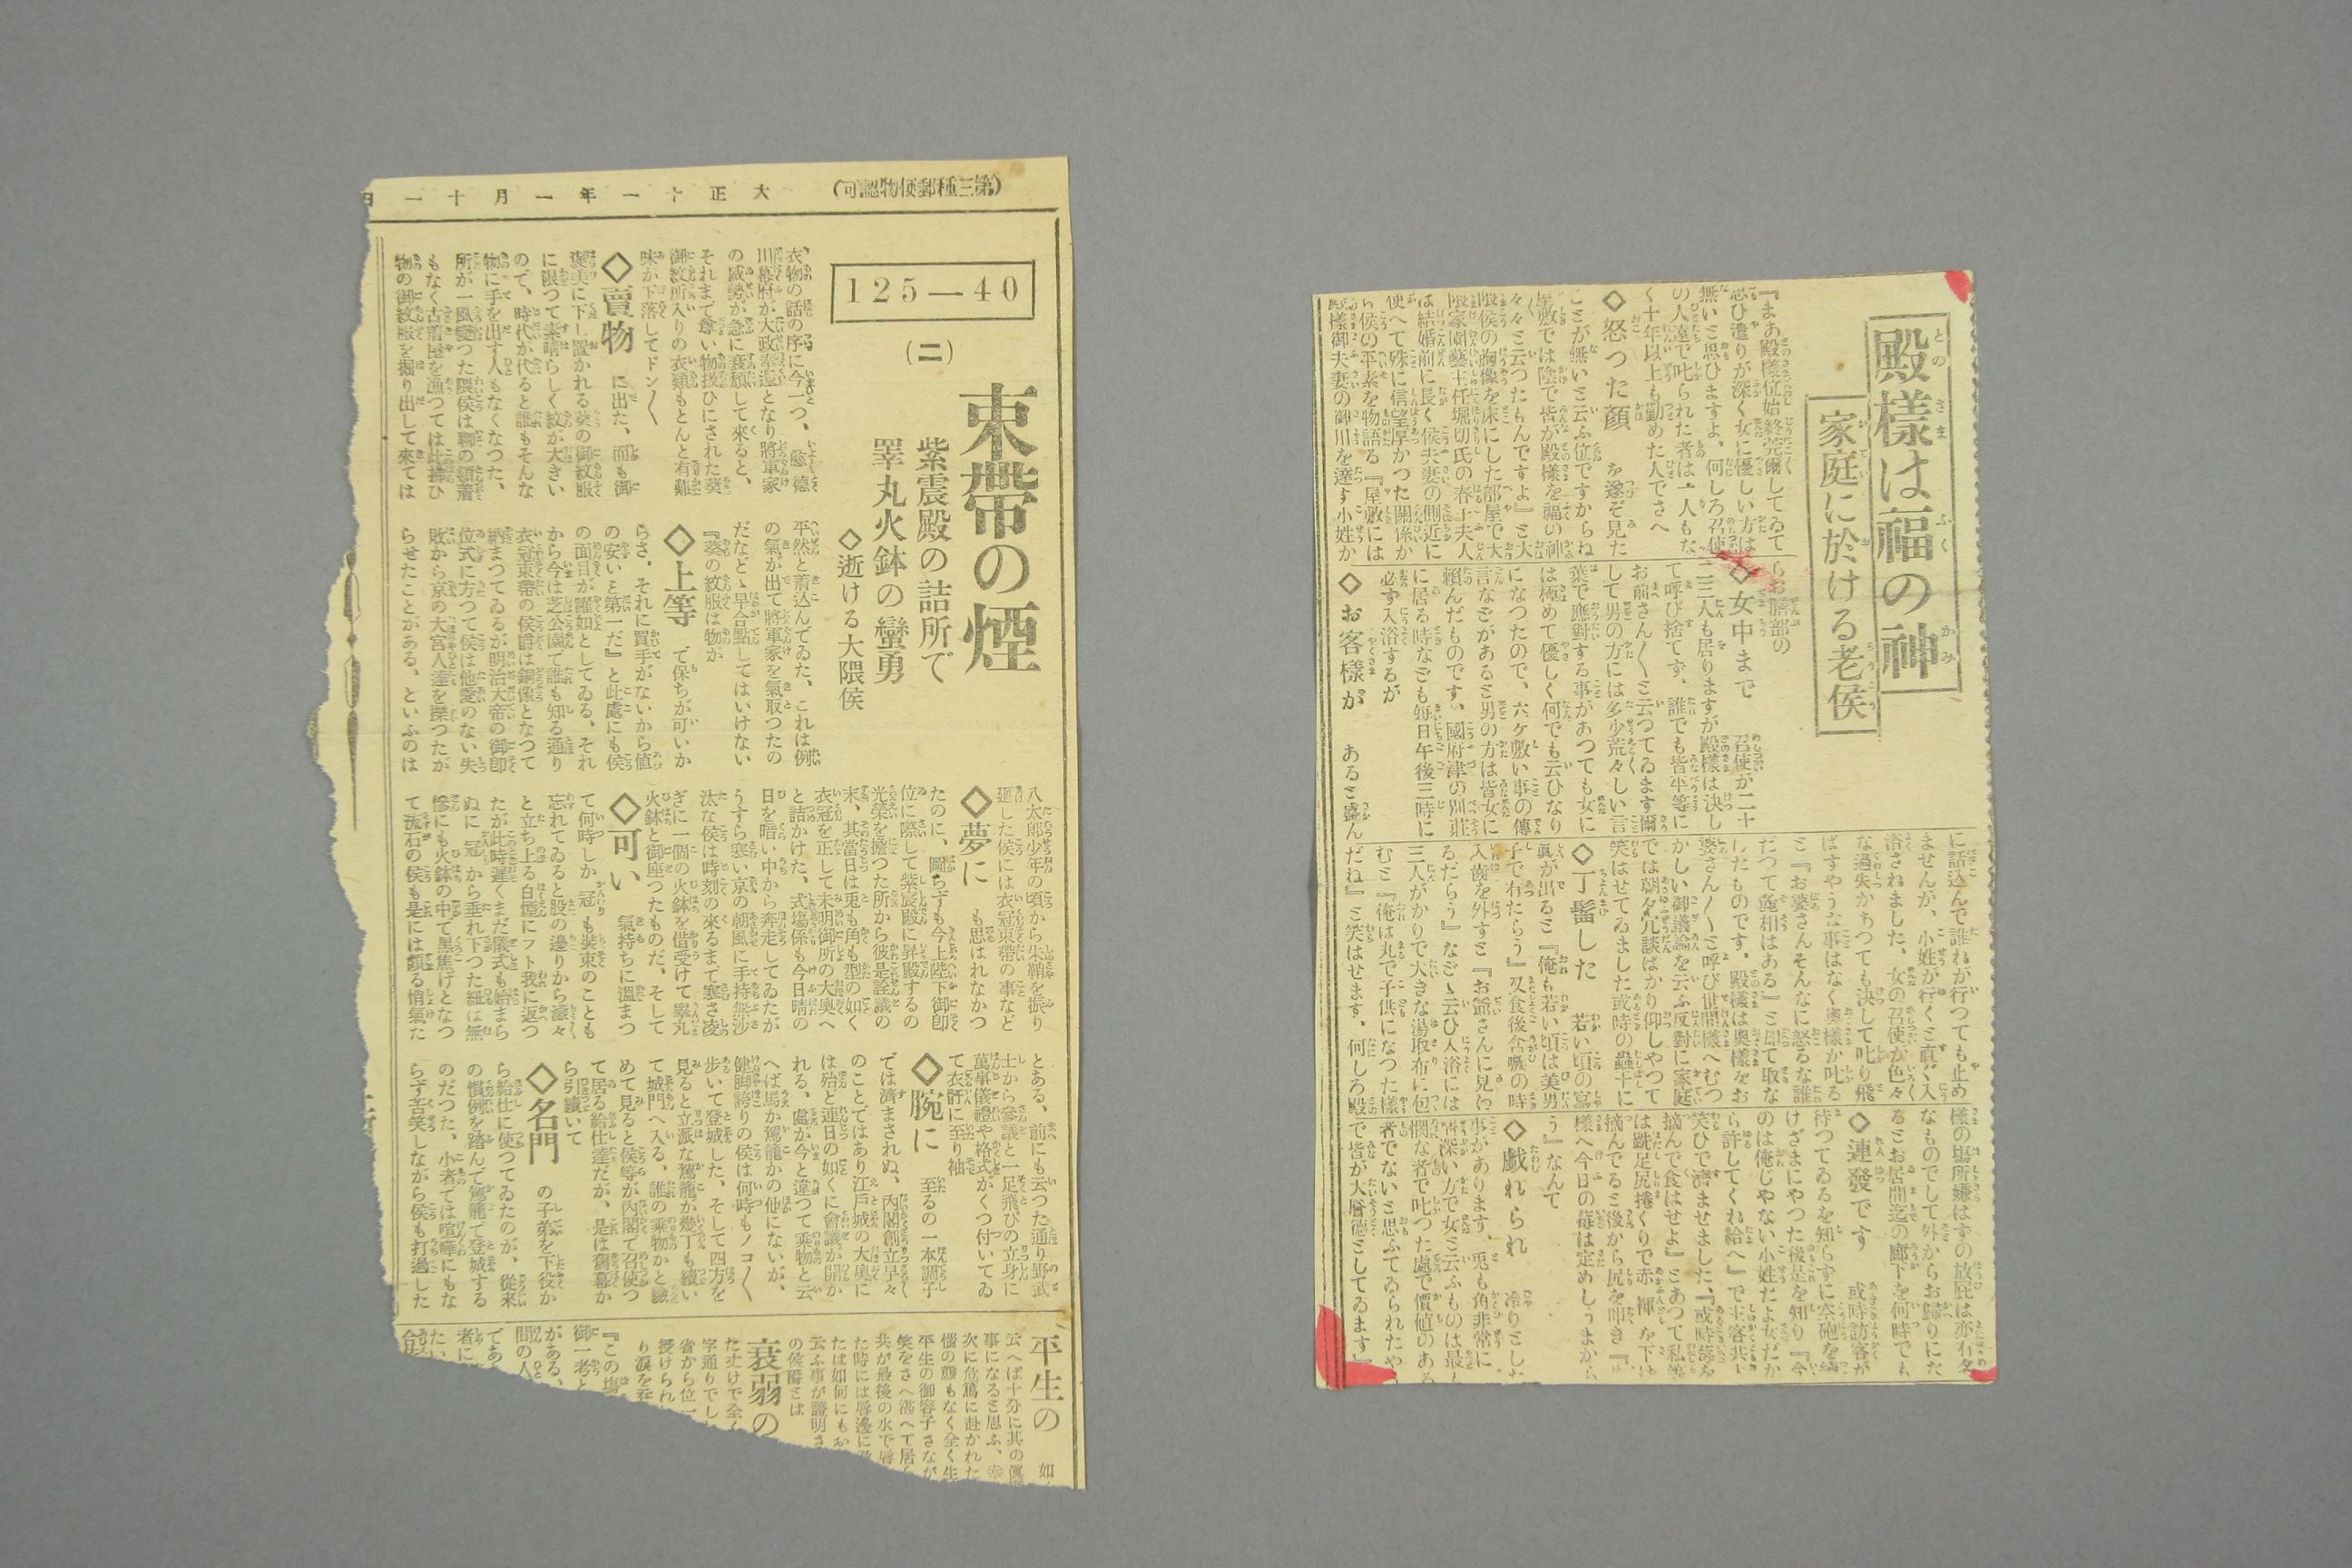 (第三種郵便物認可)
大正十一年一月十一
125—40
(二)
束帶の煙
紫震殿の詰所で
睪丸火鉢の蠻勇
◇逝ける大隈侯
衣物の話の序に今一つ、 德
川幕府が大政奉還となり將軍家
の威勢が急に衰頽して來ると、
それまで尊い物扱ひにされた葵
御紋所入りの衣類もとんと有難
味が下落してドン〱
◇賣物 に出た、而も御
褒美に下し置かれる葵の御紋服
に限つて素晴らしく紋が大きい
ので、時代が代ると誰もそんな
物に手を出す人もなくなつた、
所が一風變つた隈侯は聊の頓着
もなく古着屋を漁つては此拂ひ
物の御紋服を掘り出して來ては
平然と着込んでゐた、これは例
の氣が出て將軍家を氣取つたの
だなどゝ早合點してはいけない
『葵の紋服は物が
◇上等 で保ちが可いか
らさ、それに買手がないから値
の安いと第一だ』と此處にも侯
の面目が躍如としてゐる、それ
から今は芝公園で誰も知る通り
衣冠束帶の侯爵は銅像となつて
納まつてゐるが明治大帝の御卽
位式に方つて侯は他愛のない失
敗から京の大宮人達を擽つたが
らせたことがある、といふのは
八太郎少年の頃から朱鞘を振り
廻した侯には衣冠束帶の事など
◇夢に も思はれなかつ
たのに、圖らずも今上陛下御卽
位に際して紫宸殿に昇殿するの
光榮を擔つた所から彼是詮議の
末、其當日は兎も角も型の如く
衣冠を正して未明御所の大奧へ
と詰かけた、式場係も今日晴の
日を暗い中から奔走してゐたが
うすら寒い京の朝風に手持無沙
汰な侯は時刻の來るまで寒さ凌
ぎに一個の火鉢を借受けて睪丸
火鉢と御座つたものだ、そして
◇可い 氣持ちに溫まつ
て何時しか冠も裝束のことも
忘れてゐると股の邊りから濛々
と立ち上る白煙にフト我に返つ
たが此時遲くまだ儀式も始まら
ぬに冠から垂れ下つた紐は無
慘にも火鉢の中で黑焦げとなつ
て流石の侯も是には頗る悄氣た
とある、前にも云つた通り野武
士から參議と一足飛びの立身に
萬事儀禮や格式がくつ付いてゐ
て衣冠に至り袖
◇腕に 至るの一本調子
では濟まされぬ、內閣創立早々
のことではあり江戶城の大奧に
は殆ど連日の如くに會議が開か
れる、處が今と違つて乘物と云
へば馬か駕籠かの他にないが、
健脚誇りの侯は何時もノコ〱
步いて登城した、そして四方を
見ると立派な駕籠が幾丁も續い
て城門へ入る、誰の乘物かと認
めて見ると侯等が內閣で召使つ
て居る給仕達だが、是は舊幕か
ら引續いて
◇名門 の子弟を下役か
ら給仕に使つてゐたのが、從來
の慣例を踏んで駕籠で登城する
のだつた、小者ては喧嘩にもな
らず苦笑しながら侯も打過した
平生の 如
云へば十分に其の
事になるミ思ふ、
次に危篤に赴かれた
惱の態もなく全く生
平生の御容子さなが
笑をさへ湛へて居
共が最後の水で唇
た時には唇邊に
たは如何にもお
云ふ事が證明さ
の侯爵ミは
衰弱の
た丈けで全く
字通りでし
省から位一
授けられ
り淚を呑
『この塲
御一老と
がある、
間の人
であ
者に
殿樣は福の神
家庭に於ける老侯
『まあ殿樣位始終莞爾してゐて
思ひ遣りが深く女に優しい方は
無いミ思ひますよ、何しろ召使
の人達で叱られた者は一人もな
く十年以上も勤めた人でさへ
◇怒つた顏 を遂ぞ見た
ミが無いミ云ふ位ですからね
屋敷では陰で皆が殿樣を福の神
々々ミ云つたもんですよ』ミ大
隈侯の胸像を床にした部屋で大
隈家園藝主任堀切氏の春土夫人
は結婚前に長く侯夫妻の側近に
使へて殊に信望厚かつた關係か
ら侯の平素を物語る『屋敷には
殿樣御夫妻の御用を達す小姓か
らお膳部の
◇女中まで 召使が二十
二三人も居りますが殿樣は決し
て呼び捨てず、誰でも皆平等に
お前さん〱ミ云つてゐます爾
して男の方には多少荒々しい言
葉で應對する事があつても女に
は極めて優しく何でも云ひなり
になつたので、六ケ敷い事の傳
言なぞがあるミ男の方は皆女に
賴んだものです、國府津の別莊
に居る時なぞも每日午後三時に
必ず入浴するが
◇お客樣が あるミ盛ん
に話込んで誰れが行つても止め
ませんが、小姓が行くミ直ぐ入
浴されました、女の召使が色々
な過失があつても決して叱り飛
ばすやうな事はなく奧樣が叱る
ミ『お婆さんそんなに怒るな誰
だつて麁相はある』ミ卽て取な
したものです、殿樣は奧樣をお
婆さん〱ミ呼び世間樣へむつ
かしい御議論を云ふ反對に家庭
では朝夕冗談ばかり仰しやつて
笑はせてゐました或時の蟲干に
◇丁髷した 若い頃の寫
眞が出るミ『俺も若い頃は美男
子で有たらう』又食後含嗽の時
入齒を外すミ『お爺さんに見へ
るだらう』なぞゝ云ひ入浴には
三人がかりで大きな湯取布に包
むミ『俺は丸で子供になつた樣
だね』ミ笑はせます、何しろ殿
樣の塲所嫌はずの放屁は亦有名
なものでして外からお歸りにな
るミお居間迄の廊下を何時でも
◇連發です 或時訪客が
待つてゐるを知らずに空砲を續
けざまにやつた後是を知り『今
のは俺じやない小姓だよ女だか
ら許してくれ給へ』で主客共に
笑ひで濟ませました、『或時苺を
摘んで食はせよ』ミあつて私等
は跣足尻捲くりで赤褌を下げ
摘んでるミ後から尻を叩き『
樣へ今日の苺は定めしうまから
う』なんて
◇戲れられ 冷りミした
事があります、兎も角非常に
情深い方で女ミ云ふものは最
憫な者で叱つた處で價値のある
者でないミ思ふてゐられたや
で皆が大層德ミしてゐます』